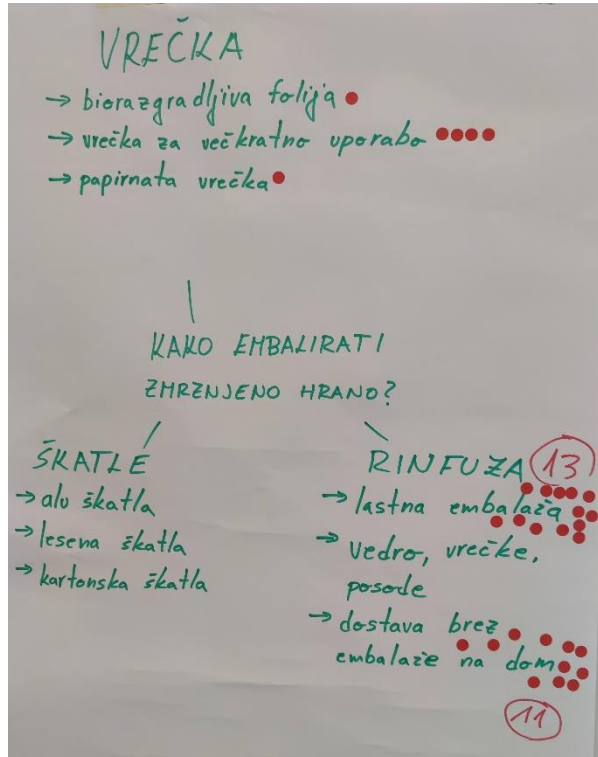 VREČKA
→ biorazgradljiva folija
→ vrečka za večkratno uporabo
→ papirnata vrečka
KAKO EMBALIRATI
ZMRZNJENO HRANO?
ŠKATLE
→ alu škatla
→ lesena škatla
→ kartonska škatla
RINFUZA 13
→ lastna embalaža
→ vedro, vrečke,
posode
→ dostava brez
embalaže na dom
11